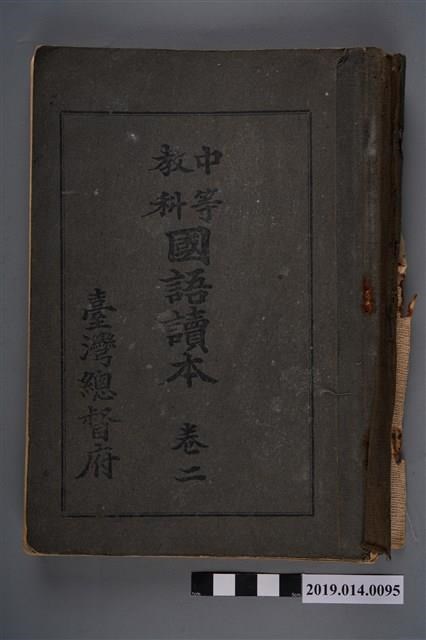 中等
教科
國語讀本 卷二
臺灣總督府
2019.014.0095